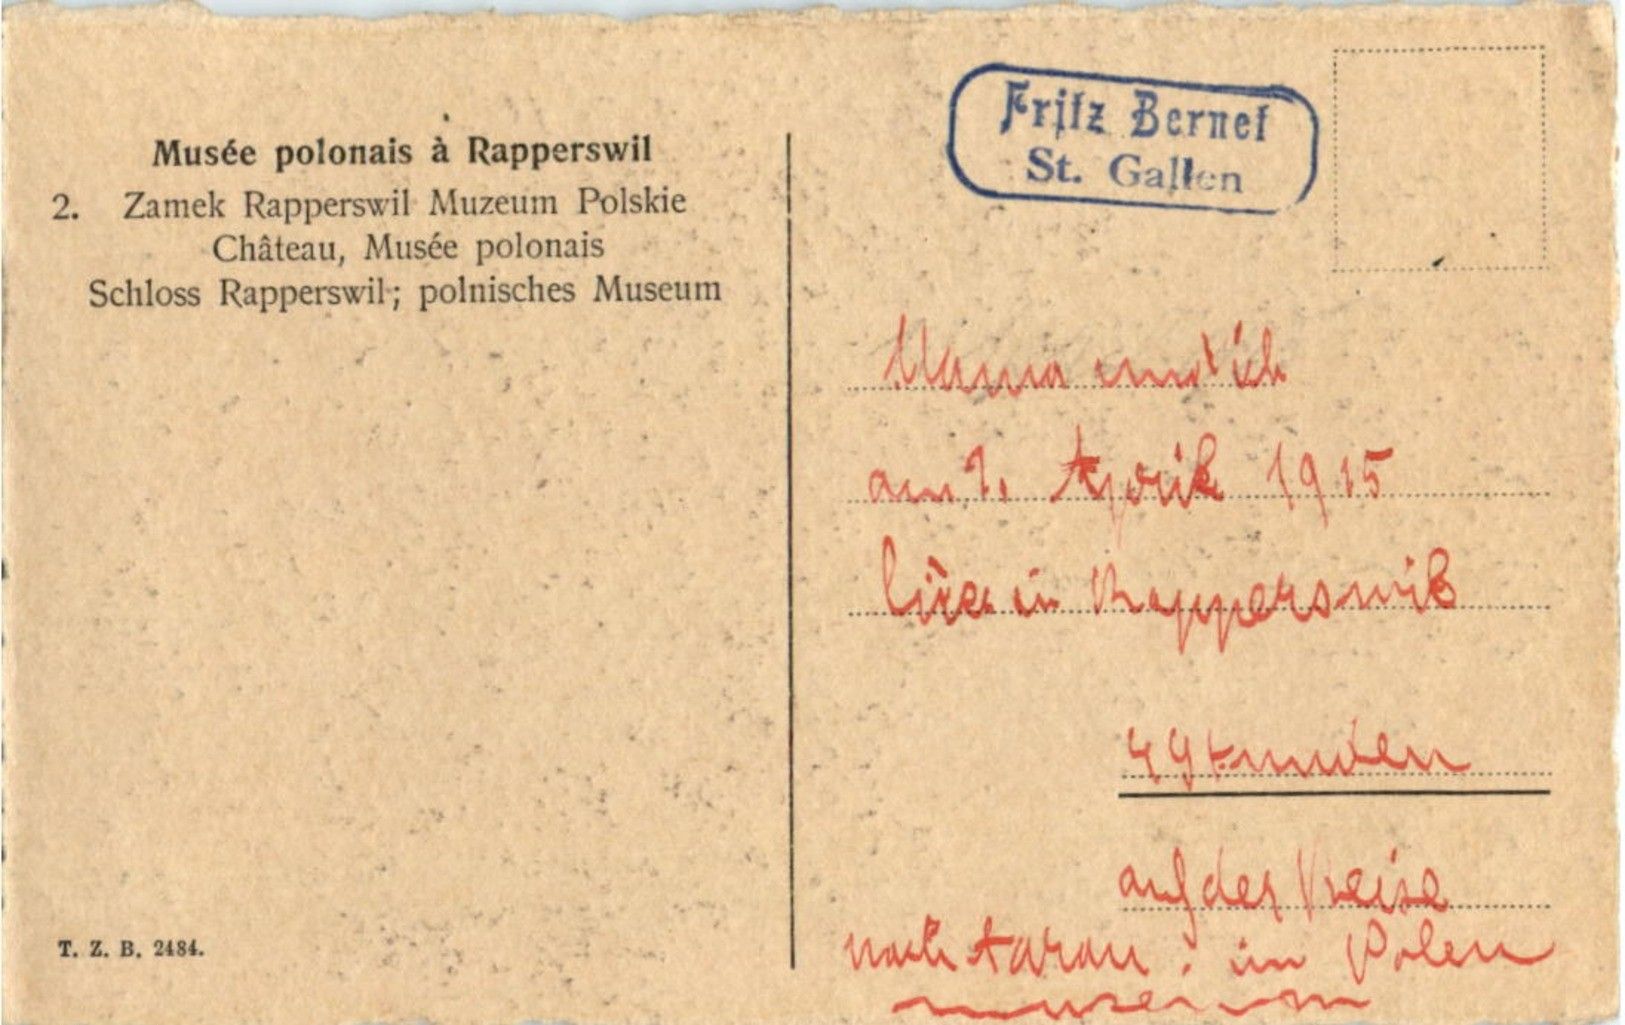 Fritz Bernet
St. Gallen
Musée polonais à Rapperswil
2. Zamek Rapperswil Muzeum Polskie
Château, Musée polonais
Schloss Rapperswil; polnisches Museum
Mama und ich
am 1. April 1915
hier in Rapperswil
4 Stunden
auf der Reise
nach Aarau: im Polen
museum
T. Z. B. 2484.